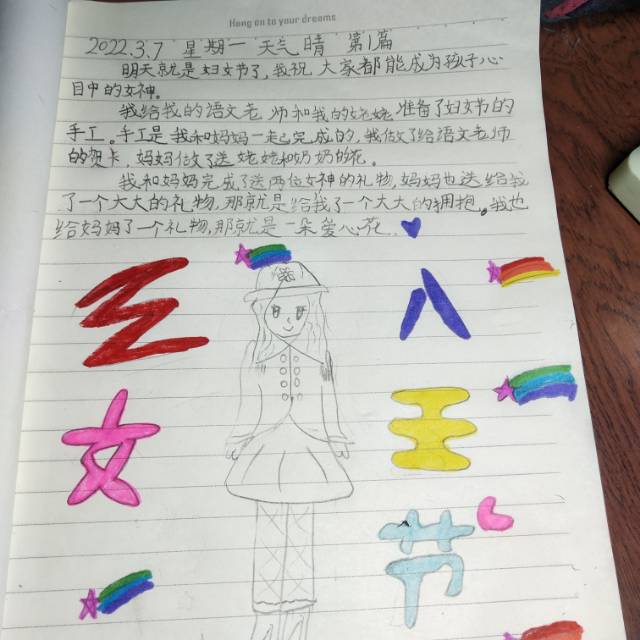 Hang on to your dreams
2022.3.7 星期一 天气晴 第1篇
明天就是妇女节了,我祝大家都能成为孩子心
目中的女神。
我给我的语文老师和我的姥姥准备了妇女节的
手工。手工是我和妈妈一起完成的,我做了给语文老师
的贺卡,妈妈做了送姥姥和奶奶的花。
我和妈妈完成了送两位女神的礼物,妈妈也送给我
了一个大大的礼物,那就是给我了一个大大的拥抱。我也
给妈妈了一个礼物,那就是一朵爱心花
三 八
女 王
节